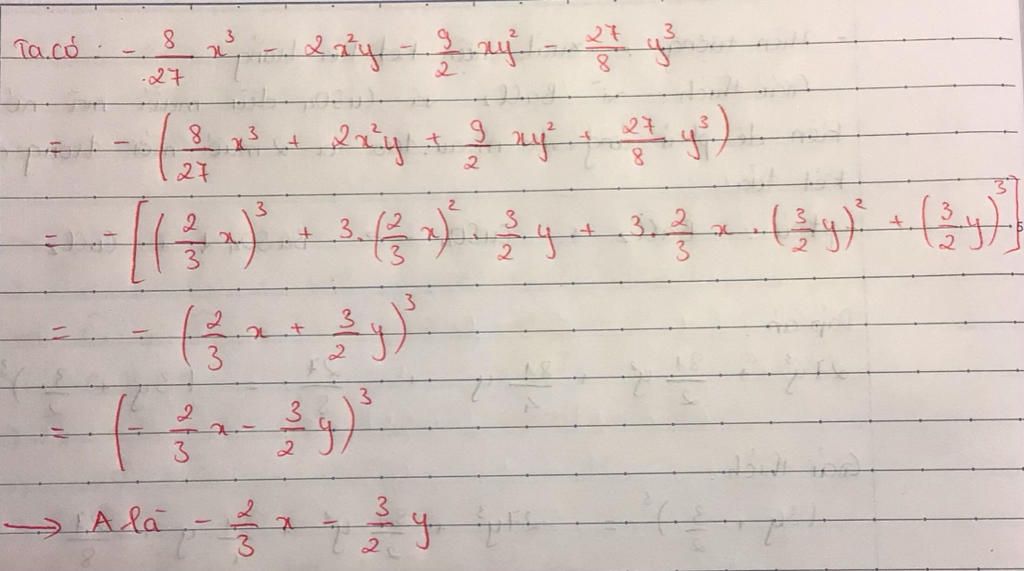 Ta có: - 8/27 x³ - 2x²y - 9/2 xy² - 27/8 y³
= - (8/27 x³ + 2x²y + 9/2 xy² + 27/8 y³)
= - [(2/3 x)³ + 3.(2/3 x)². 3/2 y + 3. 2/3 x . (3/2 y)² + (3/2 y)³]
= - (2/3 x + 3/2 y)³
= (- 2/3 x - 3/2 y)³
→ A là - 2/3 x - 3/2 y